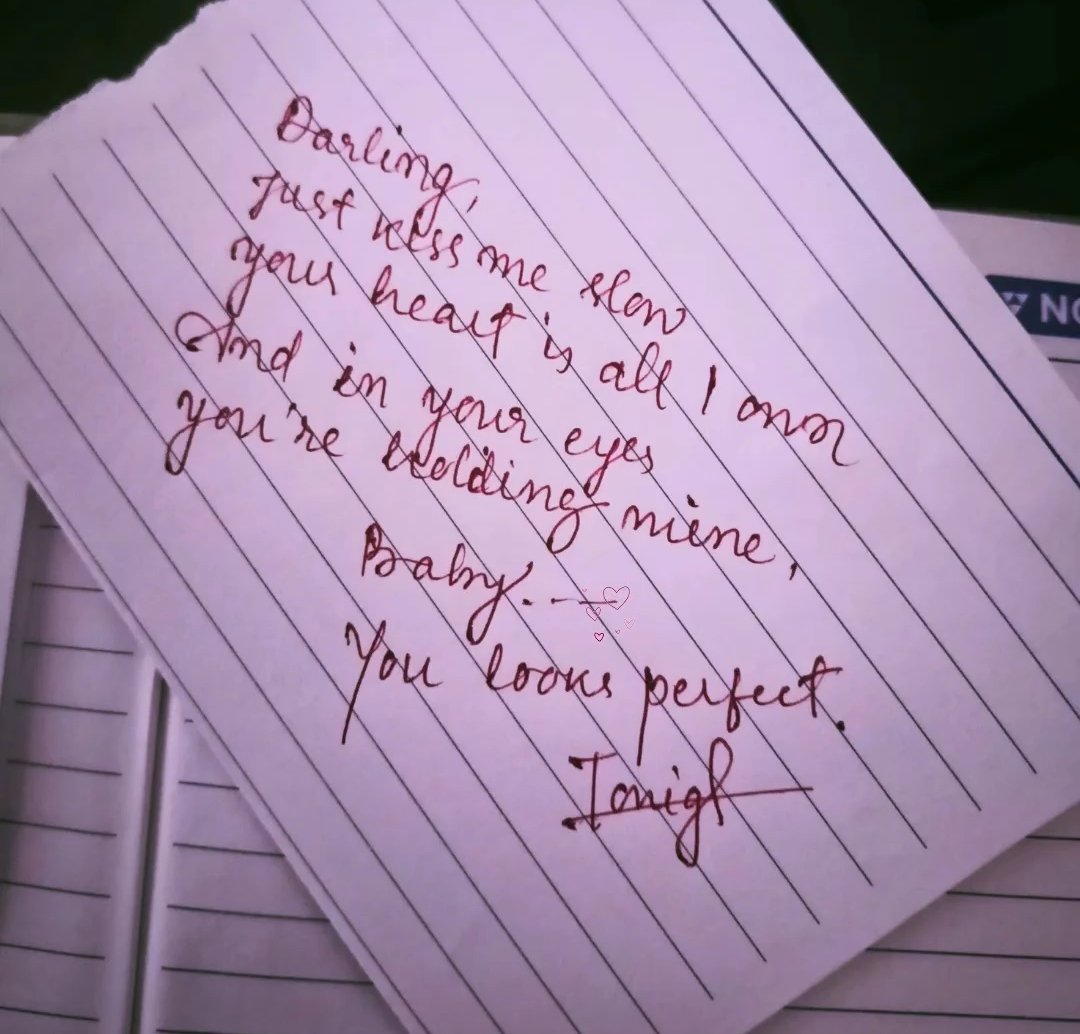 Darling,
Just kiss me slow
your heart is all I own
And in your eyes
you're holding mine,
Baby. —
You looks perfect.
Tonight
NO